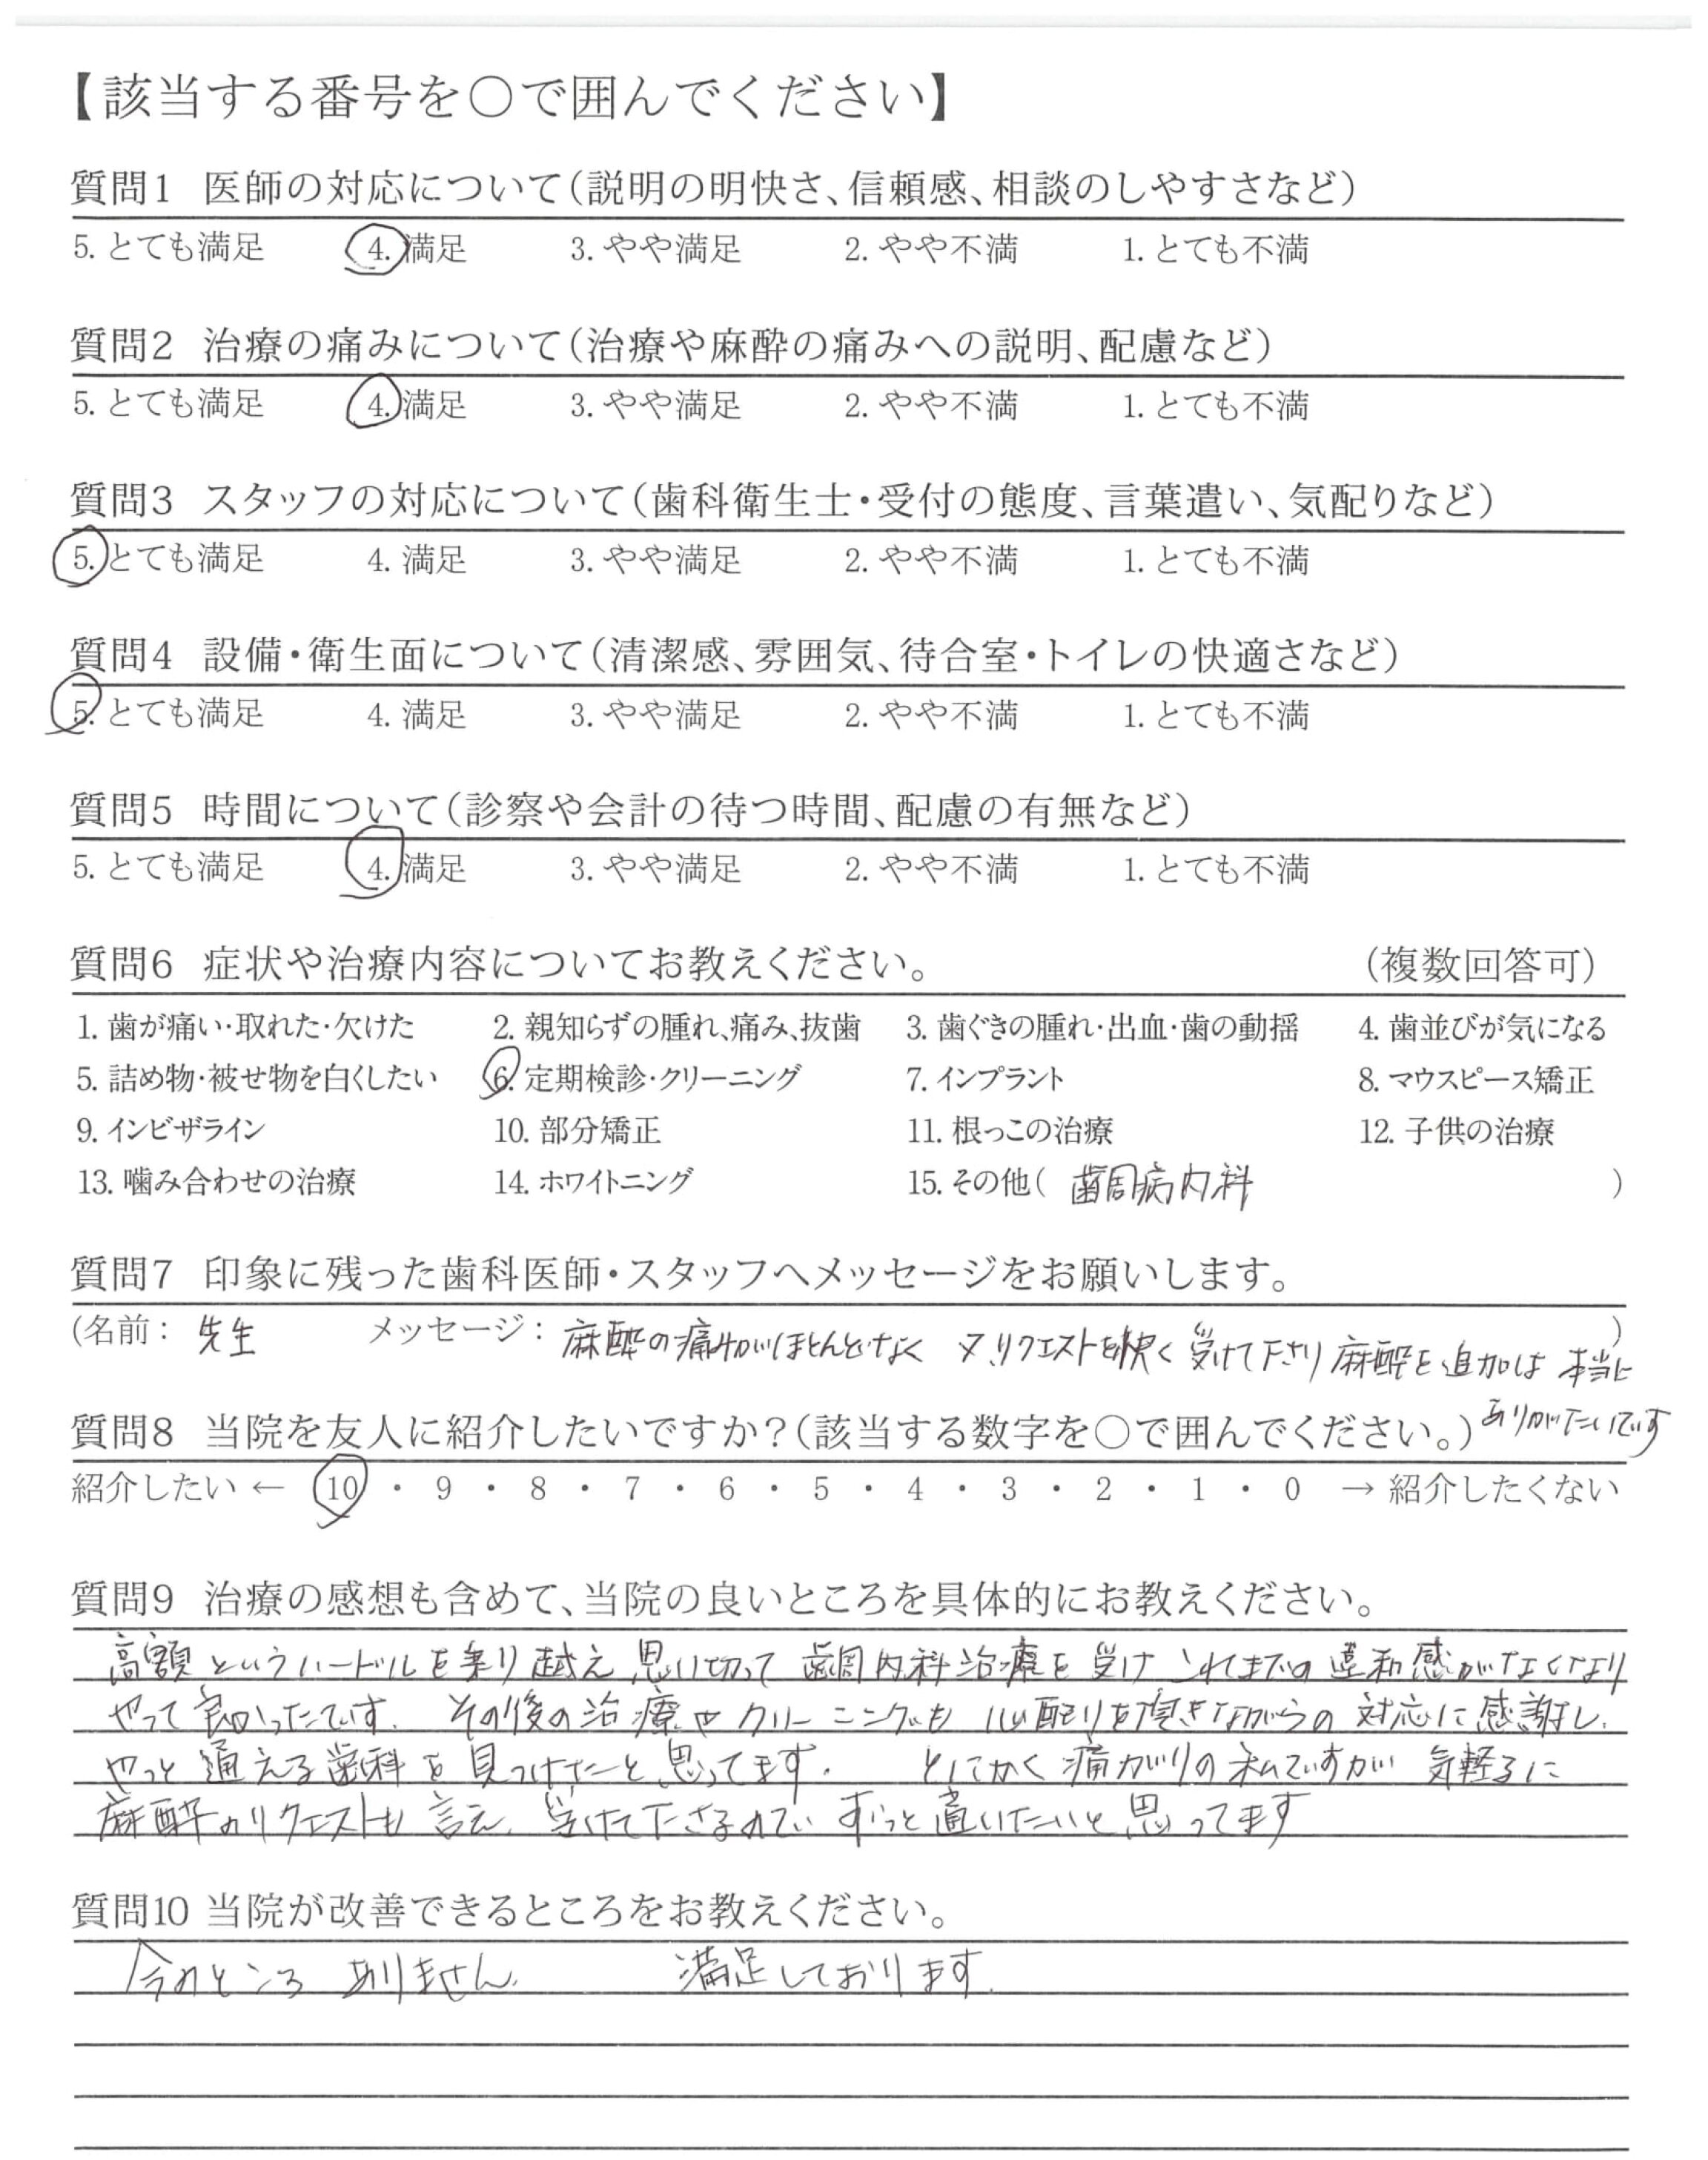 【該当する番号を〇で囲んでください】
質問1 医師の対応について(説明の明快さ、信頼感、相談のしやすさなど)
5. とても満足 4. 満足 3. やや満足 2. やや不満 1. とても不満
質問2 治療の痛みについて(治療や麻酔の痛みへの説明、配慮など)
5. とても満足 4. 満足 3. やや満足 2. やや不満 1. とても不満
質問3 スタッフの対応について(歯科衛生士・受付の態度、言葉遣い、気配りなど)
5. とても満足 4. 満足 3. やや満足 2. やや不満 1. とても不満
質問4 設備・衛生面について(清潔感、雰囲気、待合室・トイレの快適さなど)
5. とても満足 4. 満足 3. やや満足 2. やや不満 1. とても不満
質問5 時間について(診察や会計の待つ時間、配慮の有無など)
5. とても満足 4. 満足 3. やや満足 2. やや不満 1. とても不満
質問6 症状や治療内容についてお教えください。 (複数回答可)
1. 歯が痛い・取れた・欠けた 2. 親知らずの腫れ、痛み、抜歯 3. 歯ぐきの腫れ・出血・歯の動揺 4. 歯並びが気になる
5. 詰め物・被せ物を白くしたい 6. 定期検診・クリーニング 7. インプラント 8. マウスピース矯正
9. インビザライン 10. 部分矯正 11. 根っこの治療 12. 子供の治療
13. 噛み合わせの治療 14. ホワイトニング 15. その他( 歯周病内科 )
質問7 印象に残った歯科医師・スタッフへメッセージをお願いします。
(名前: 先生 メッセージ: 麻酔の痛みがほとんどなく 又、リクエストを快く受けて下さり麻酔を追加は 本当に )
ありがたいです
質問8 当院を友人に紹介したいですか?(該当する数字を〇で囲んでください。)
紹介したい ← 10 ・ 9 ・ 8 ・ 7 ・ 6 ・ 5 ・ 4 ・ 3 ・ 2 ・ 1 ・ 0 → 紹介したくない
質問9 治療の感想も含めて、当院の良いところを具体的にお教えください。
高額というハードルを乗り越え 思い切って 歯周内科治療を受け これまでの違和感がなくなり
やって良かったです. その後の治療やクリーニングも 心配りを頂きながらの 対応に感謝し、
やっと通える歯科を見つけたと思ってます. とにかく痛がりの私ですが 気軽るに
麻酔のリクエストも 言え、受けて下さるので、ずっと通いたいと思ってます
質問10 当院が改善できるところをお教えください。
今のところ ありません. 満足しております.